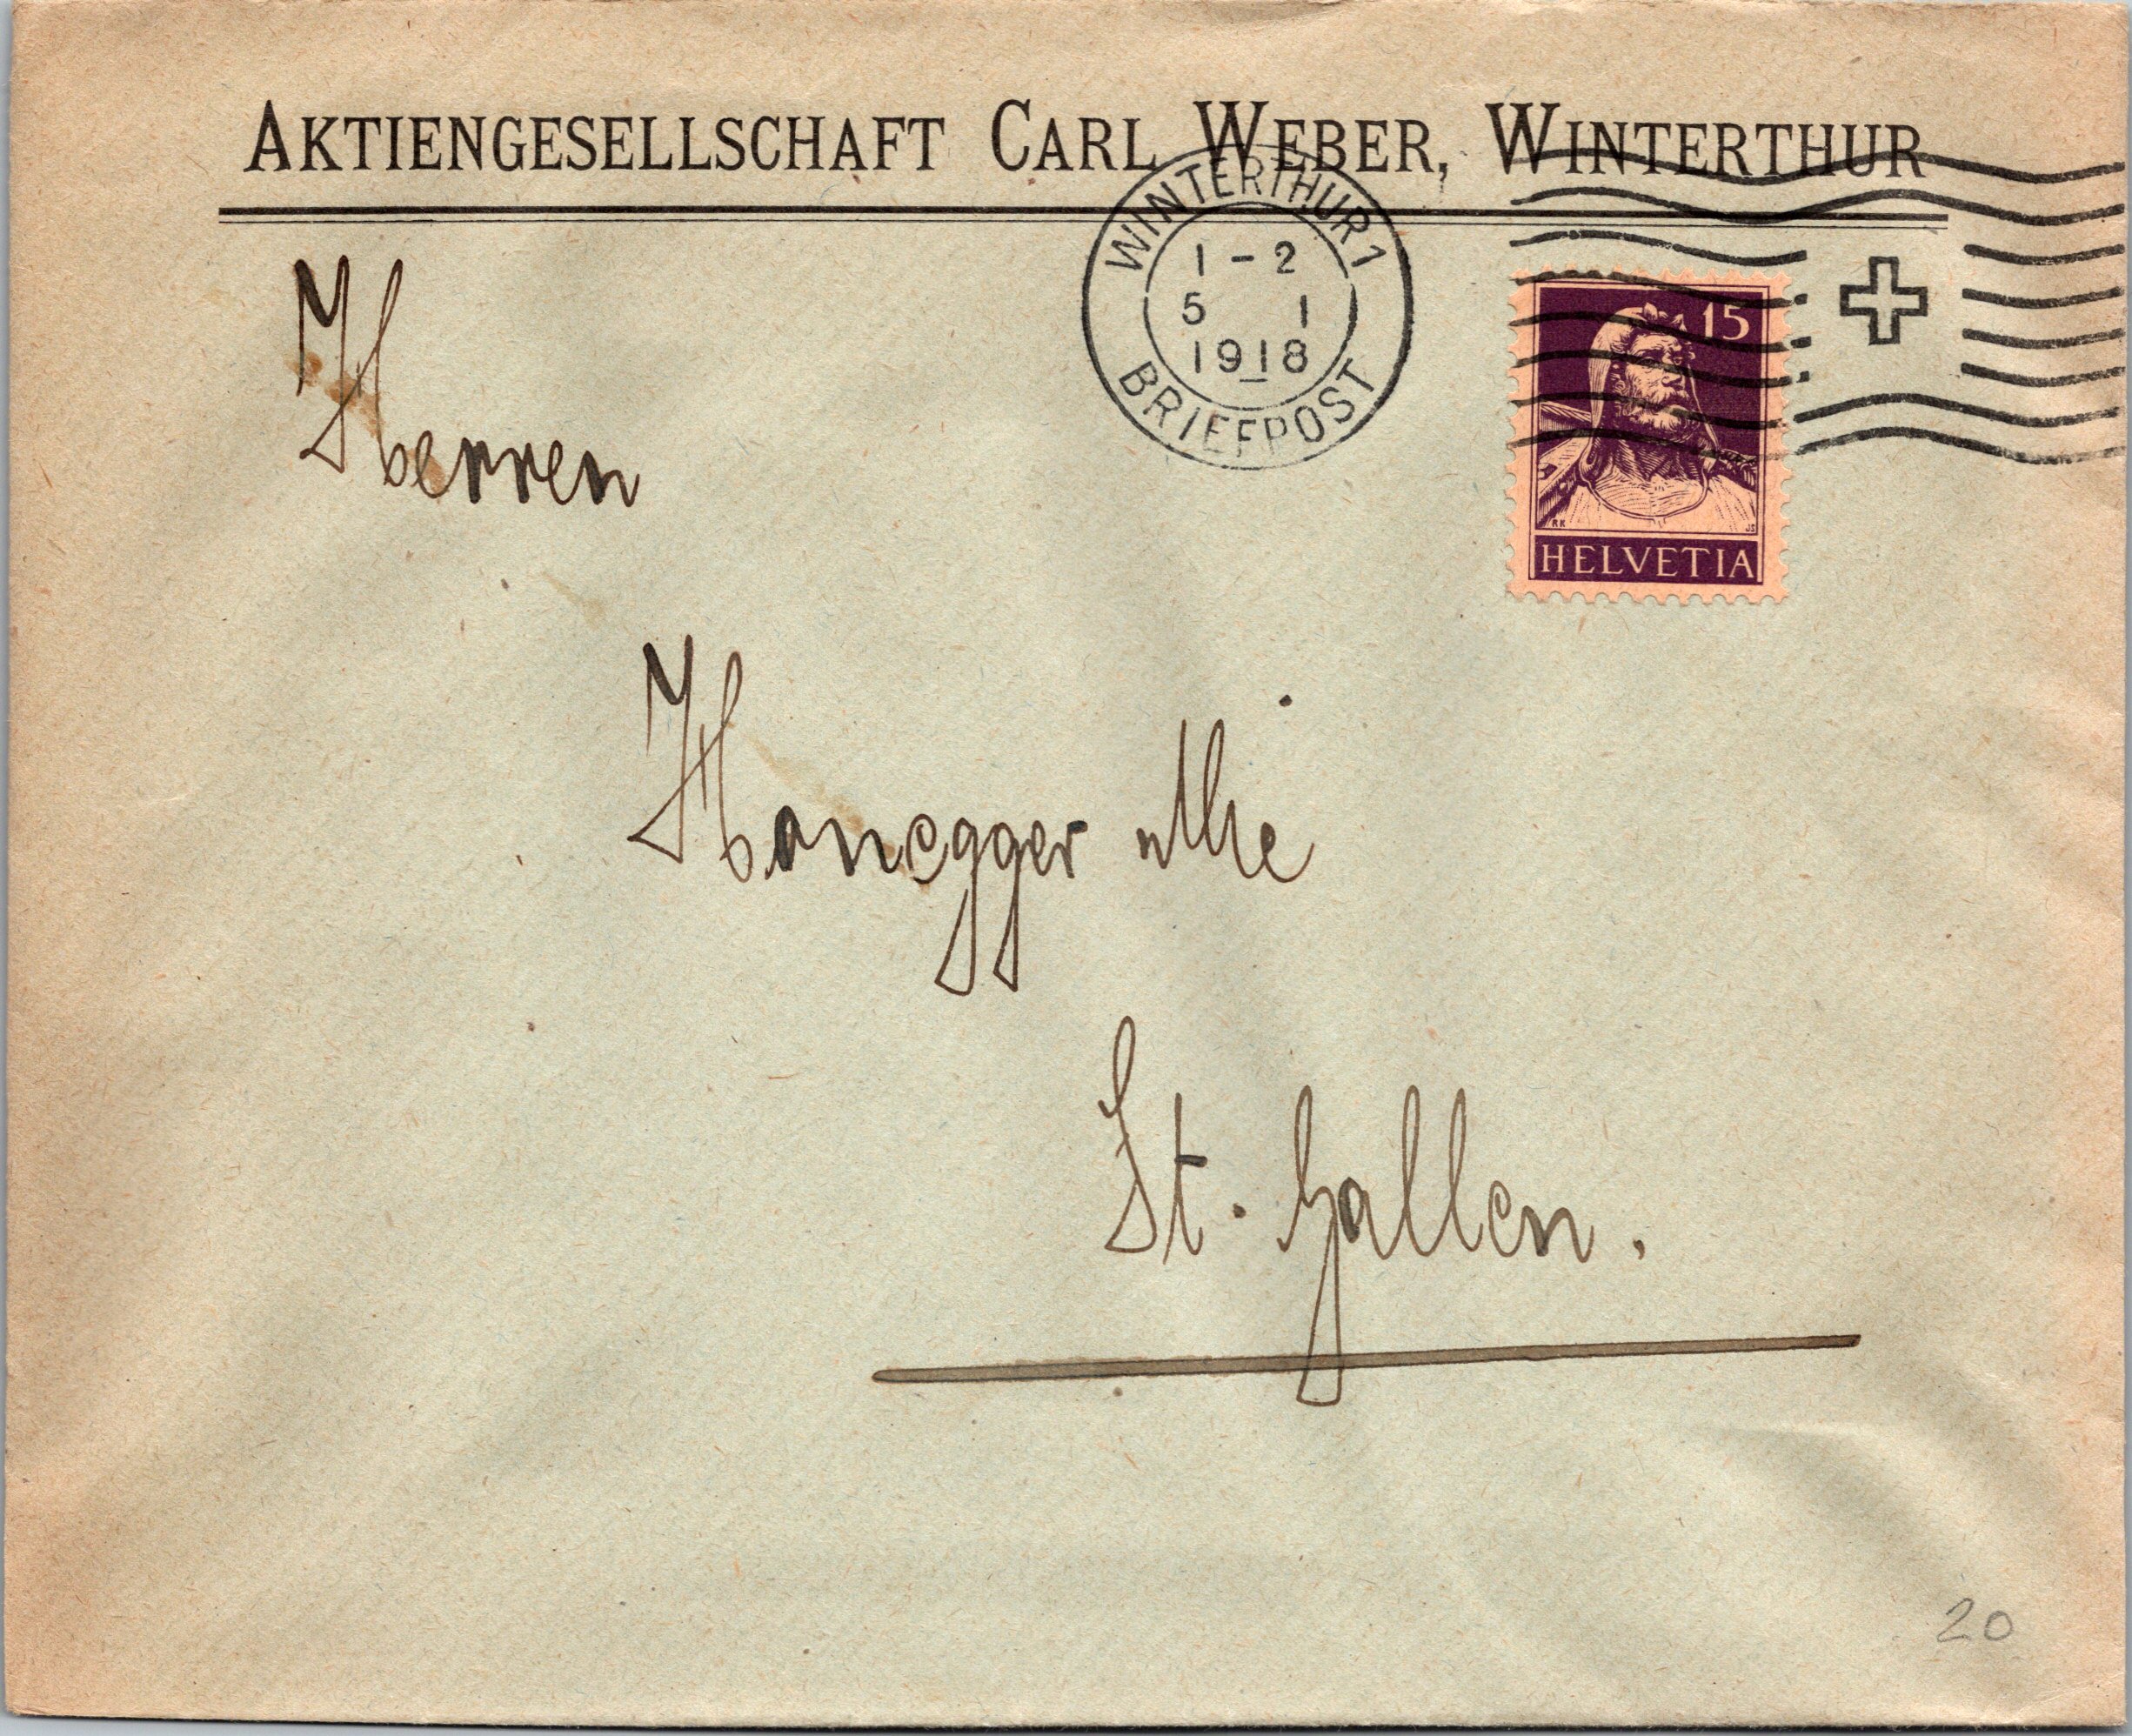 AKTIENGESELLSCHAFT CARL WEBER, WINTERTHUR
WINTERTHUR 1
1-2
5 I
1918
BRIEFPOST
15
RK JS
HELVETIA
Herren
Honegger
St. Gallen.
20